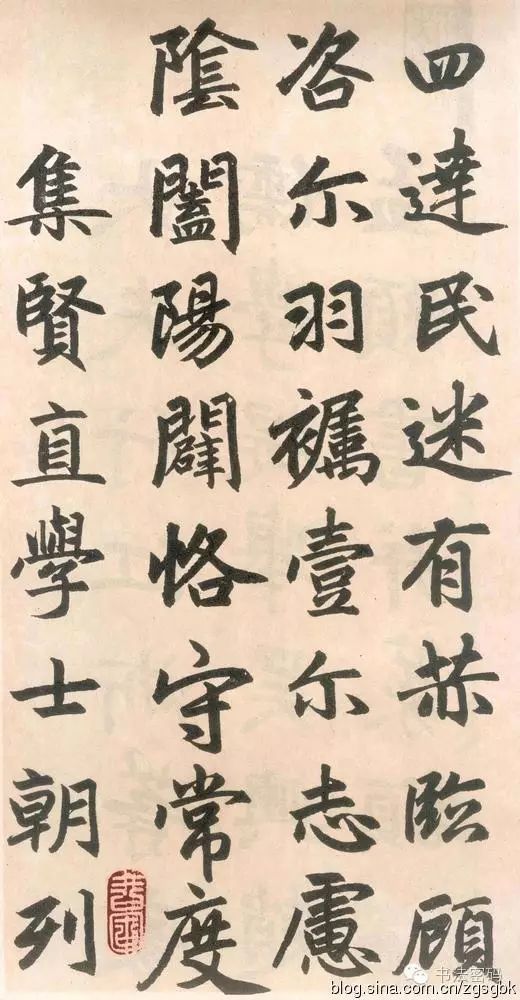 四達民迷有赫臨顧
咨尔羽壹尔志慮
陰闔陽闢恪守常度
集賢直學士朝列
书法密码
blog.sina.com.cn/zgsgbk